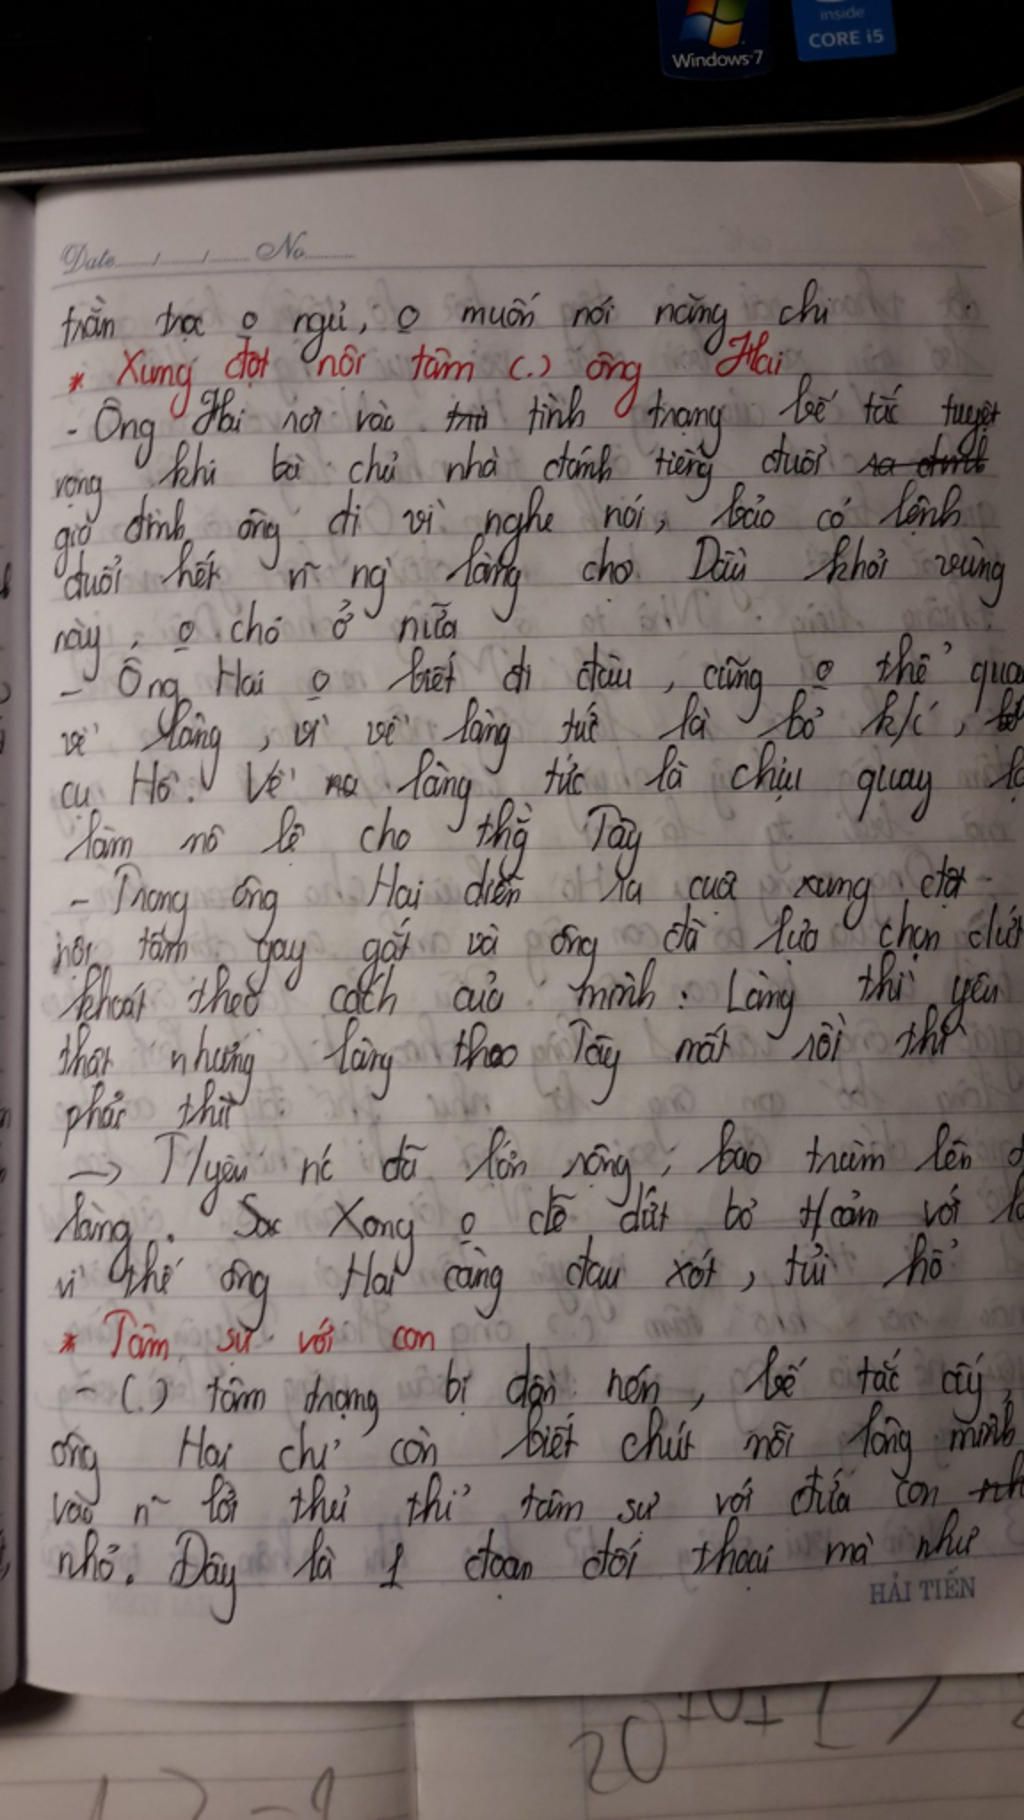 inside
CORE i5
Windows 7
Date....../....../...... No..........
trằn trọc o ngủ, o muốn nói năng chi
* Xung đột nội tâm (.) ông Hai
- Ông Hai rơi vào tình trạng bế tắc tuyệt
vọng khi bà chủ nhà đánh tiếng đuổi
gia đình ông đi vì nghe nói, bảo có lệnh
đuổi hết n~ ng` làng chợ Dầu khỏi vùng
này, o cho ở nữa
- Ông Hai o biết đi đâu, cũng o thể quay
về làng, vì về làng tức là bỏ k/c,
cụ Hồ. Về làng tức là chịu quay
làm nô lệ cho thg` Tây
- Trong ông Hai diễn ra cuộc xung đột
nội tâm gay gắt và ông đã lựa chọn dứt
khoát theo cách của mình: Làng thì yêu
thật nhưng làng theo Tây mất rồi thì
phải thù
→ T/yêu nc đã lớn rộng, bao trùm lên
làng. Song o dễ dứt bỏ t/cảm với
vì thế ông Hai càng đau xót, tủi hổ
* Tâm sự với con
- (.) tâm trạng bị dồn nén, bế tắc ấy,
ông Hai chỉ còn biết chút nỗi lòng mình
vào n~ lời thủ thỉ tâm sự với đứa con
nhỏ. Đây là 1 đoạn đối thoại mà như
HẢI TIẾN